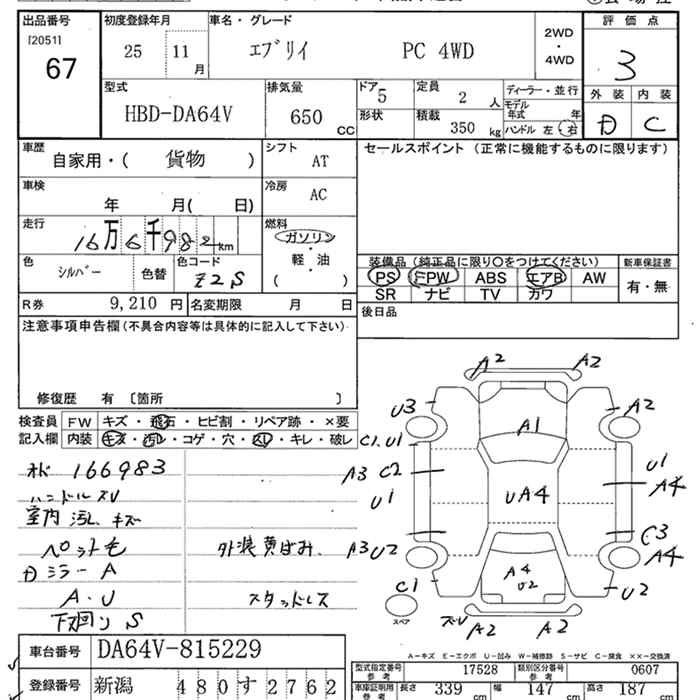 出品番号 初度登録年月 車名・グレード 評価点
[2051] 67 25 11 月 エブリイ PC 4WD 2WD・4WD 3
型式 排気量 ドア 5 定員 2 人 ディーラー・並行 外装 内装
HBD-DA64V 650 CC 形状 積載 350 kg モデル年式 年 D C
ハンドル 左 右
車歴 自家用・( 貨物 ) シフト AT セールスポイント (正常に機能するものに限ります)
車検 年 月( 日) 冷房 AC
走行 16万6千982km 燃料 ガソリン・軽・油 ( )
装備品 (純正品に限り○をつけてください) 新車保証書
色 シルバー 色替 色コード Z2S PS PW ABS エアB AW 有・無
SR ナビ TV カワ
R券 9,210 円 名変期限 月 日 後日品
注意事項申告欄(不具合内容等は具体的に記入して下さい)
修復歴 有 〔箇所 〕
検査員 FW キズ・飛石・ヒビ割・リペア跡・×要
記入欄 内装 キズ・汚レ・コゲ・穴・スレ・キレ・破レ
A2 A2
U3 A1 A2
C1.U1
A3 C2 U1
U1 UA4 A4
A3 U2 C3
A4 U2 A4
C1 U2
スペア
A2 A2
166983
ハンドルスレ
室内 汚レ キズ
ペット毛 外装 黄ばみ.
ミラー A
A.U スタッドレス
下廻り S
A-キズ E-エクボ U-凹み W-補修跡 S-サビ C-腐食 ××-交換済
車台番号 DA64V-815229
型式指定番号 参考 17528 類別区分番号 参考 0607
登録番号 新潟 480す2762
車庫証明用 参考 長さ 339 cm 幅 147 cm 高さ 187 cm